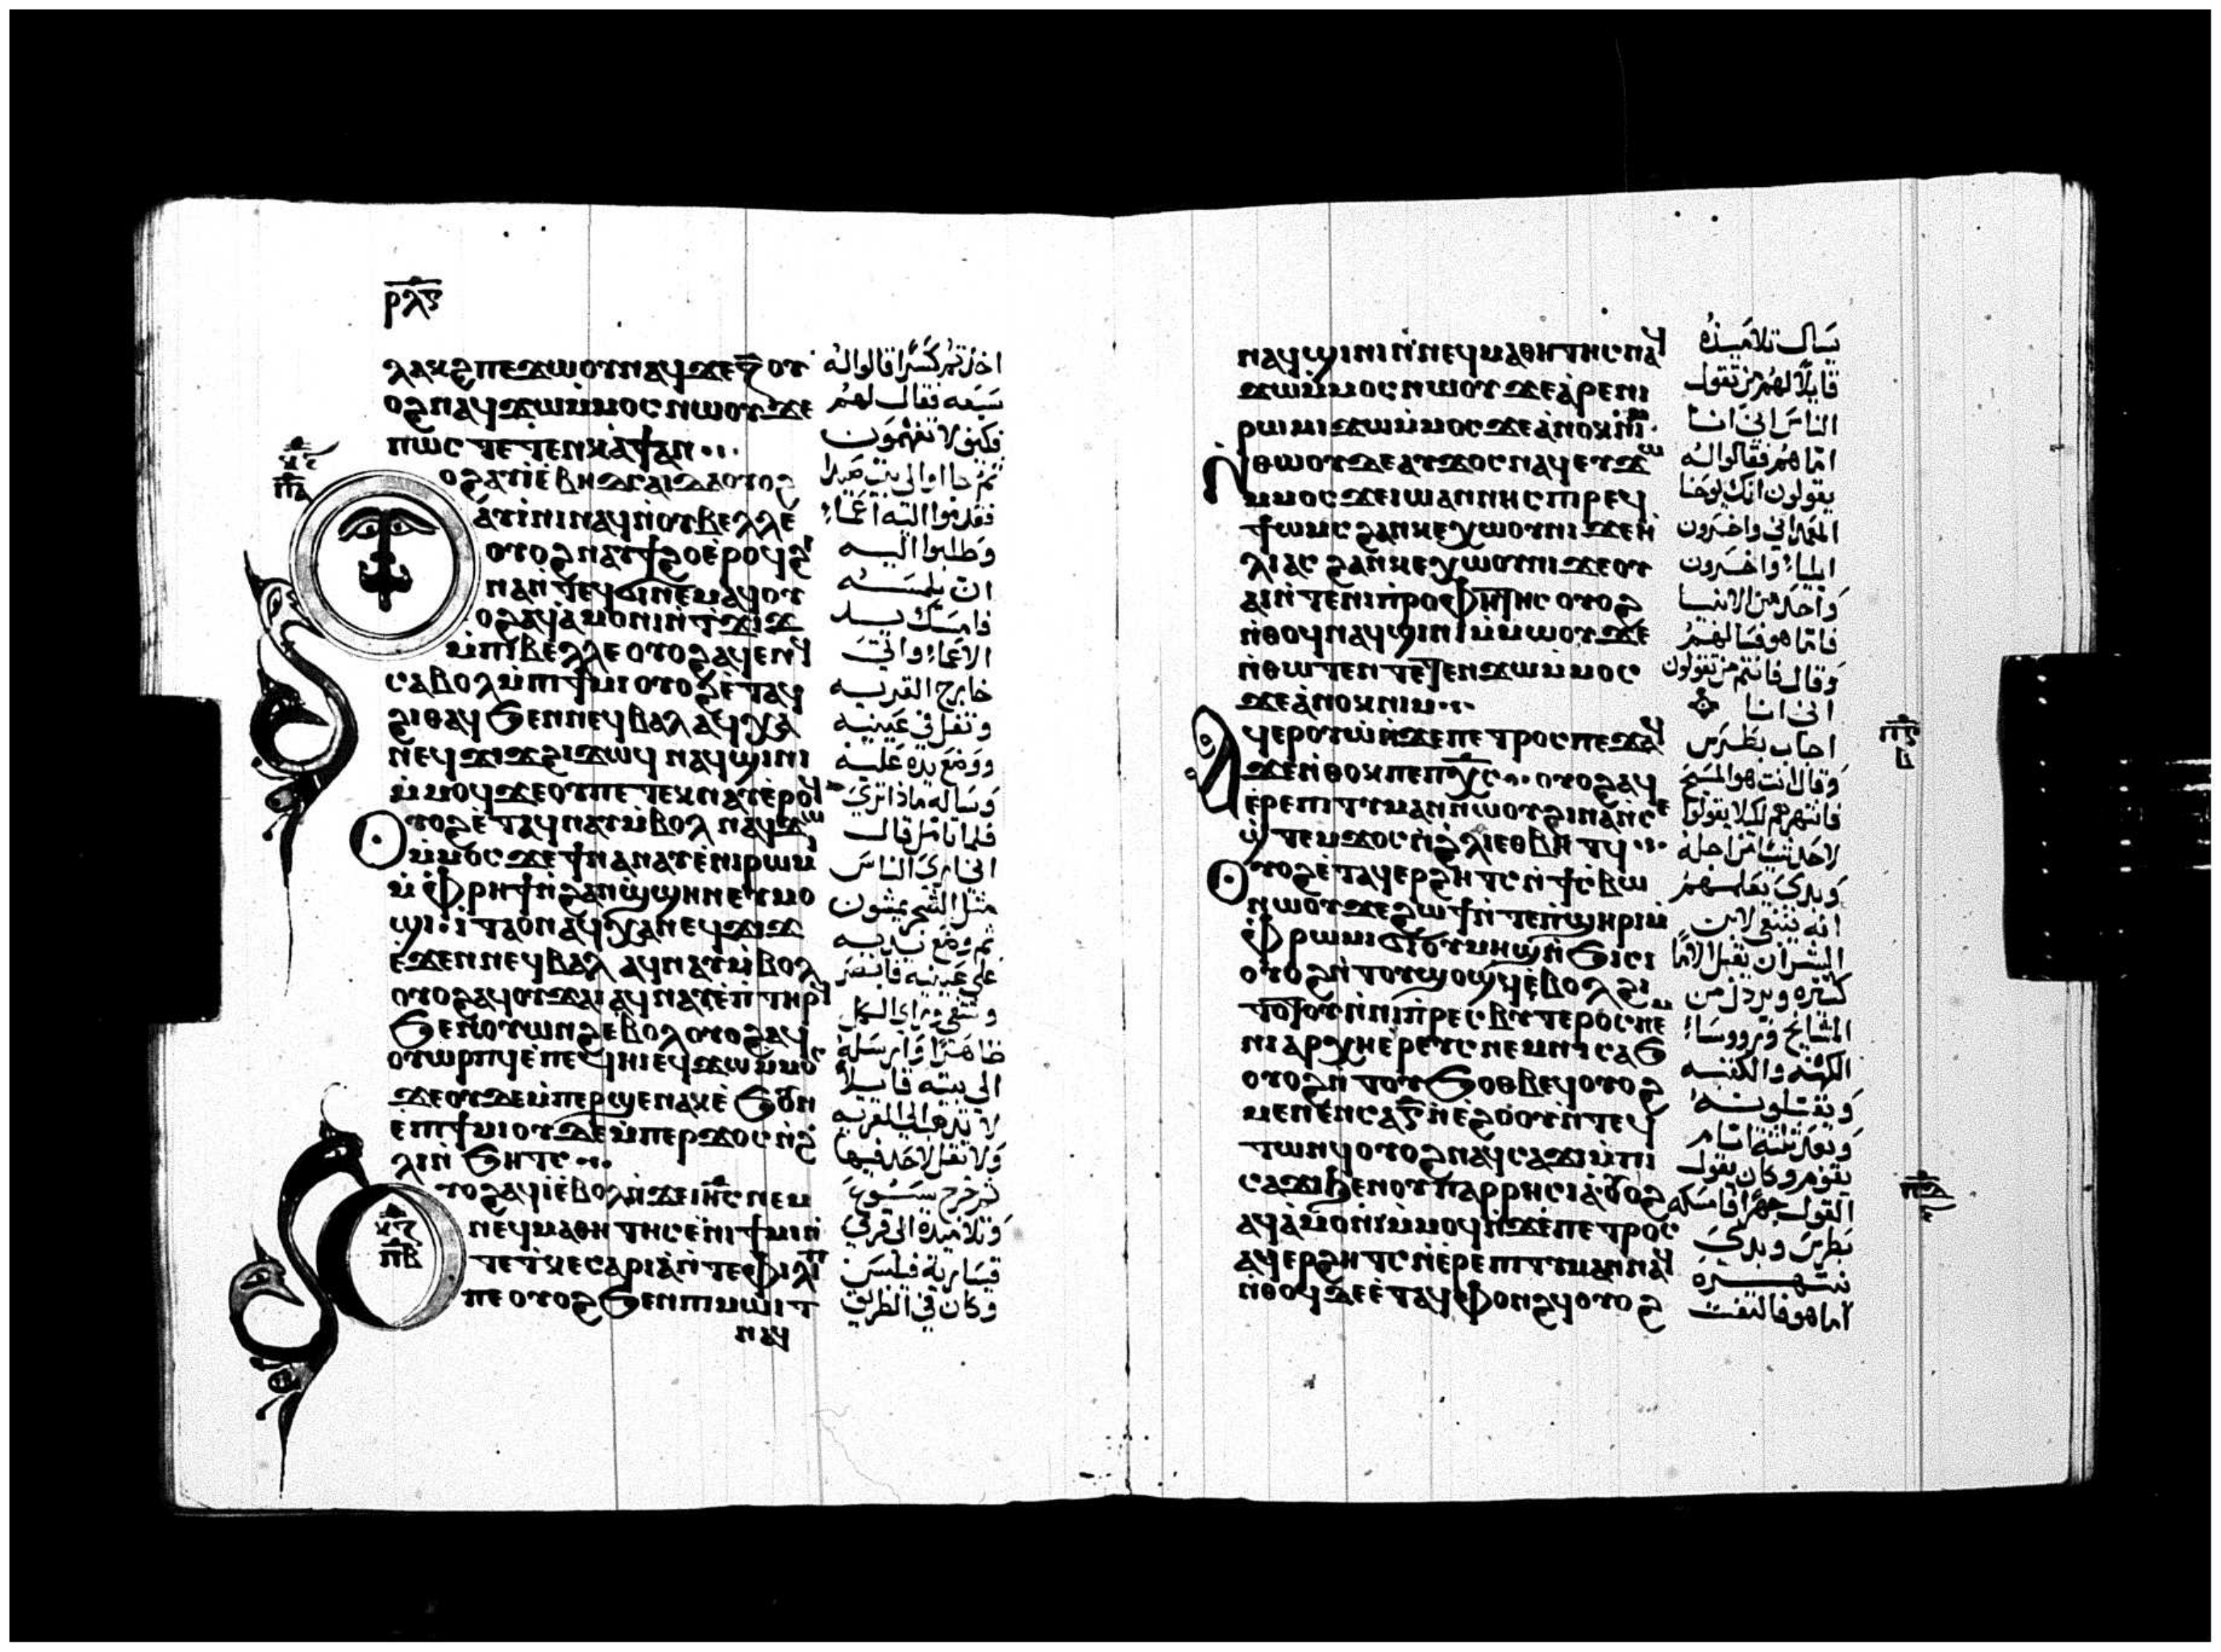 ⲣⲗⲋ
ⲗⲁⲕϩ ⲡⲉϫⲱⲟⲩ ⲛⲁϥ ϫⲉ ⲍ̄ ⲟⲩ
ⲟϩ ⲛⲁϥϫⲱ ⲙ̇ⲙⲟⲥ ⲛⲱⲟⲩ ϫⲉ
ⲡⲱⲥ ⲧⲉⲧⲉⲛⲕⲁϯ ⲁⲛ
ⲟϩ ⲁⲩⲓ̇ ⲉ̇ⲃⲏⲇⲥⲁⲓⲇⲁ ⲟⲩⲟϩ
ⲁⲩⲓ̇ⲛⲓ ⲛⲁϥ ⲛ̇ⲟⲩⲃⲉⲗⲗⲉ
ⲟⲩⲟϩ ⲛⲁⲩϯϩⲟ ⲉ̇ⲣⲟϥ ϩⲓ
ⲛⲁ ⲛⲧⲉϥϭⲓ ⲛⲉⲙⲁϥ ⲟⲩ
ⲟϩ ⲁϥⲁ̇ⲙⲟⲛⲓ ⲛ̇ⲧϫⲓϫ
ⲙ̇ⲡⲓⲃⲉⲗⲗⲉ ⲟⲩⲟϩ ⲁϥⲉⲛϥ
ⲥⲁⲃⲟⲗ ⲙ̇ⲡⲓϯⲙⲓ ⲟⲩⲟϩ ⲉ̇ⲧⲁϥ
ϩⲓⲑⲁϥ ϧⲉⲛ ⲛⲉϥⲃⲁⲗ ⲁϥⲭⲁ
ⲛⲉϥϫⲓϫ ϩⲓϫⲱϥ ⲛⲁϥϣⲓⲛⲓ
ⲙ̇ⲙⲟϥ ϫⲉ ⲟⲩ ⲡⲉⲧⲉⲕⲛⲁⲩ ⲉ̇ⲣⲟϥ
ⲟⲩⲟϩ ⲉ̇ⲧⲁϥⲛⲁⲩ ⲙ̇ⲃⲟⲗ ⲛⲁϥϫⲱ
ⲙ̇ⲙⲟⲥ ϫⲉ ϯⲛⲁⲛⲁⲩ ⲉ̇ⲛⲓⲣⲱⲙⲓ
ⲙ̇ⲫⲣⲏϯ ⲛ̇ϩⲁⲛϣϣⲏⲛ ⲉⲩⲙⲟ
ϣⲓ ⲓⲧⲁ ⲟⲛ ⲁϥⲭⲁ ⲛⲉϥϫⲓϫ
ⲉ̇ϫⲉⲛ ⲛⲉϥⲃⲁⲗ ⲁϥⲛⲁⲩ ⲙ̇ⲃⲟⲗ
ⲟⲩⲟϩ ⲁϥⲟⲩϫⲁⲓ ⲁϥⲛⲁⲩ ⲉ̇ⲡⲧⲏⲣϥ
ϧⲉⲛ ⲟⲩⲱⲛϩ ⲉ̇ⲃⲟⲗ ⲟⲩⲟϩ ⲁϥ
ⲟⲩⲱⲣⲡϥ ⲉ̇ⲡⲉϥⲏⲓ ⲉϥϫⲱ ⲙ̇ⲙⲟⲥ
ϫⲉ ⲟⲩⲇⲉ ⲙ̇ⲡⲉⲣϣⲉⲛⲁⲕ ⲉ̇ϧⲟⲩⲛ
ⲉⲡⲓϯⲙⲓ ⲟⲩⲇⲉ ⲙ̇ⲡⲉⲣϫⲟⲥ ⲛ̇ϩ
ⲗⲓ ⲛ̇ϧⲏⲧⲥ
ⲟⲩⲟϩ ⲁϥⲓ̇ ⲉ̇ⲃⲟⲗ ⲛ̇ϫⲉ ⲓⲏⲥ ⲛⲉⲙ
ⲛⲉϥⲙⲁⲑⲏⲧⲏⲥ ⲉ̇ⲛⲓϯⲙⲓ ⲛ̇
ⲧⲉ ⲧⲕⲉⲥⲁⲣⲓⲁ̇ ⲛ̇ⲧⲉ ⲫⲓⲗⲓⲡ
ⲡⲉ ⲟⲩⲟϩ ϧⲉⲛ ⲡⲓⲙⲱⲓⲧ
ⲛⲁϥ
اخذتم كسرا قالوا له
سبعه فقال لهم
فكيف لا تفهمون
ثم جااوا الى بيت صيدا
فقدموا اليه اعماء
وطلبوا اليه
ان يلمسه
فامسك بيد
الاعماء واتى
خارج القريه
وتفل في عينيه
ووضع يده عليه
وساله ماذا ترى
فلما تامل قال
انى ارى الناس
مثل الشجر يمشون
ثم وضع يديه
على عينيه فابصر
وشفي وراى الكل
ظاهرا وارسله
الى بيته قايلا
لا تدخل الى القريه
ولا تقل لاحد فيها
ثم خرج يسوع
وتلاميذه الى قرى
قيسارية فيلبس
وكان في الطريق
ⲛⲁϥϣⲓⲛⲓ ⲛ̇ⲛⲉϥⲙⲁⲑⲏⲧⲏⲥ ⲛⲁϥ
ϫⲱ ⲙ̇ⲙⲟⲥ ⲛⲱⲟⲩ ϫⲉ ⲁ̇ⲣⲉ ⲛⲓ
ⲣⲱⲙⲓ ϫⲱ ⲙ̇ⲙⲟⲥ ϫⲉ ⲁ̇ⲛⲟⲕ ⲛⲓⲙ
ⲛ̇ⲑⲱⲟⲩ ⲇⲉ ⲁⲩϫⲟⲥ ⲛⲁϥ ⲉⲩϫⲱ
ⲙ̇ⲙⲟⲥ ϫⲉ ⲓⲱⲁⲛⲛⲏⲥ ⲡⲓⲣⲉϥ
ϯⲱⲙⲥ ϩⲁⲛⲕⲉⲭⲱⲟⲩⲛⲓ ϫⲉ ⲏ̇
ⲗⲓⲁⲥ ϩⲁⲛⲕⲉⲭⲱⲟⲩⲛⲓ ϫⲉ ⲟⲩ
ⲁⲓ ⲛ̇ⲧⲉ ⲛⲓⲡ̇ⲣⲟⲫⲏⲧⲏⲥ ⲟⲩⲟϩ
ⲛ̇ⲑⲟϥ ⲛⲁϥϣⲓⲛⲓ ⲙ̇ⲙⲱⲟⲩ ϫⲉ
ⲛ̇ⲑⲱⲧⲉⲛ ⲧⲉⲧⲉⲛϫⲱ ⲙ̇ⲙⲟⲥ
ϫⲉ ⲁ̇ⲛⲟⲕ ⲛⲓⲙ
ⲁϥⲉⲣⲟⲩⲱ̇ ⲛ̇ϫⲉ ⲡⲉⲧⲣⲟⲥ ⲡⲉϫⲁϥ
ϫⲉ ⲛ̇ⲑⲟⲕ ⲡⲉ ⲡⲭⲥ ⲟⲩⲟϩ ⲁϥ
ⲉⲣⲉ̇ⲡⲓⲧⲓⲙⲁⲛ ⲛⲱⲟⲩ ϩⲓⲛⲁ ⲛ̇ⲥⲉ
ϣⲧⲉⲙϫⲟⲥ ⲛ̇ϩⲗⲓ ⲉⲑⲃⲏⲧϥ
ⲟⲩⲟϩ ⲉ̇ⲧⲁϥⲉⲣϩⲏⲧⲥ ⲛ̇ϯⲥ̇ⲃⲱ
ⲛⲱⲟⲩ ϫⲉ ϩⲱϯ ⲛ̇ⲧⲉ ⲡ̇ϣⲏⲣⲓ ⲙ̇
ⲫⲣⲱⲙⲓ ϭⲓ ⲟⲩⲙⲏϣ ⲛ̇ϧⲓⲥⲓ
ⲟⲩⲟϩ ⲛ̇ⲧⲟⲩϣⲟϣϥ ⲉ̇ⲃⲟⲗ ϩⲓ
ⲧⲟⲧⲟⲩ ⲛ̇ⲛⲓⲡ̇ⲣⲉⲥⲃⲩⲧⲉⲣⲟⲥ ⲛⲉⲙ
ⲛⲓⲁⲣⲭⲏⲉⲣⲉⲩⲥ ⲛⲉⲙ ⲛⲓⲥⲁϧ
ⲟⲩⲟϩ ⲛ̇ⲧⲟⲩϧⲟⲑⲃⲉϥ ⲟⲩⲟϩ
ⲙⲉⲛⲉⲛⲥⲁ ⲅ̄ ⲛ̇ⲉ̇ϩⲟⲟⲩ ⲛ̇ⲧⲉϥ
ⲧⲱⲛϥ ⲟⲩⲟϩ ⲛⲁϥⲥⲁϫⲓ ⲙ̇ⲡⲓ
ⲥⲁϫⲓ ϧⲉⲛ ⲟⲩⲡⲁⲣⲣⲏⲥⲓⲁ̇ ⲟⲩⲟϩ
ⲁϥⲁ̇ⲙⲟⲛⲓ ⲙ̇ⲙⲟϥ ⲛ̇ϫⲉ ⲡⲉⲧⲣⲟⲥ
ⲁϥⲉⲣϩⲏⲧⲥ ⲛ̇ⲉⲣⲉ̇ⲡⲓⲧⲓⲙⲁⲛ ⲛⲁϥ
ⲛ̇ⲑⲟϥ ⲇⲉ ⲉ̇ⲧⲁϥⲫⲟⲛϩϥ ⲟⲩⲟϩ
يسال تلاميذه
قايلا لهم من تقول
الناس اني انا
اما هم فقالوا له
يقولون انك يوحنا
المعمداني واخرون
ايلياء واخرون
واحد من الانبيا
فاما هو فسالهم
وقال فانتم من تقولون
اني انا
اجاب بطرس
وقال انت هو المسيح
فانتهرهم لكيلا يقولوا
لاحد شيا من اجله
وبدى يعلمهم
انه ينبغي لابن
البشر ان يقبل الاما
كثيره ويرذل من
المشايخ وروسا
الكهنه والكتبه
ويقتلونه
وبعد ثلثة ايام
يقوم وكان يقول
القول جهرا فامسكه
بطرس وبدى
ينتهره
اما هو فالتفت